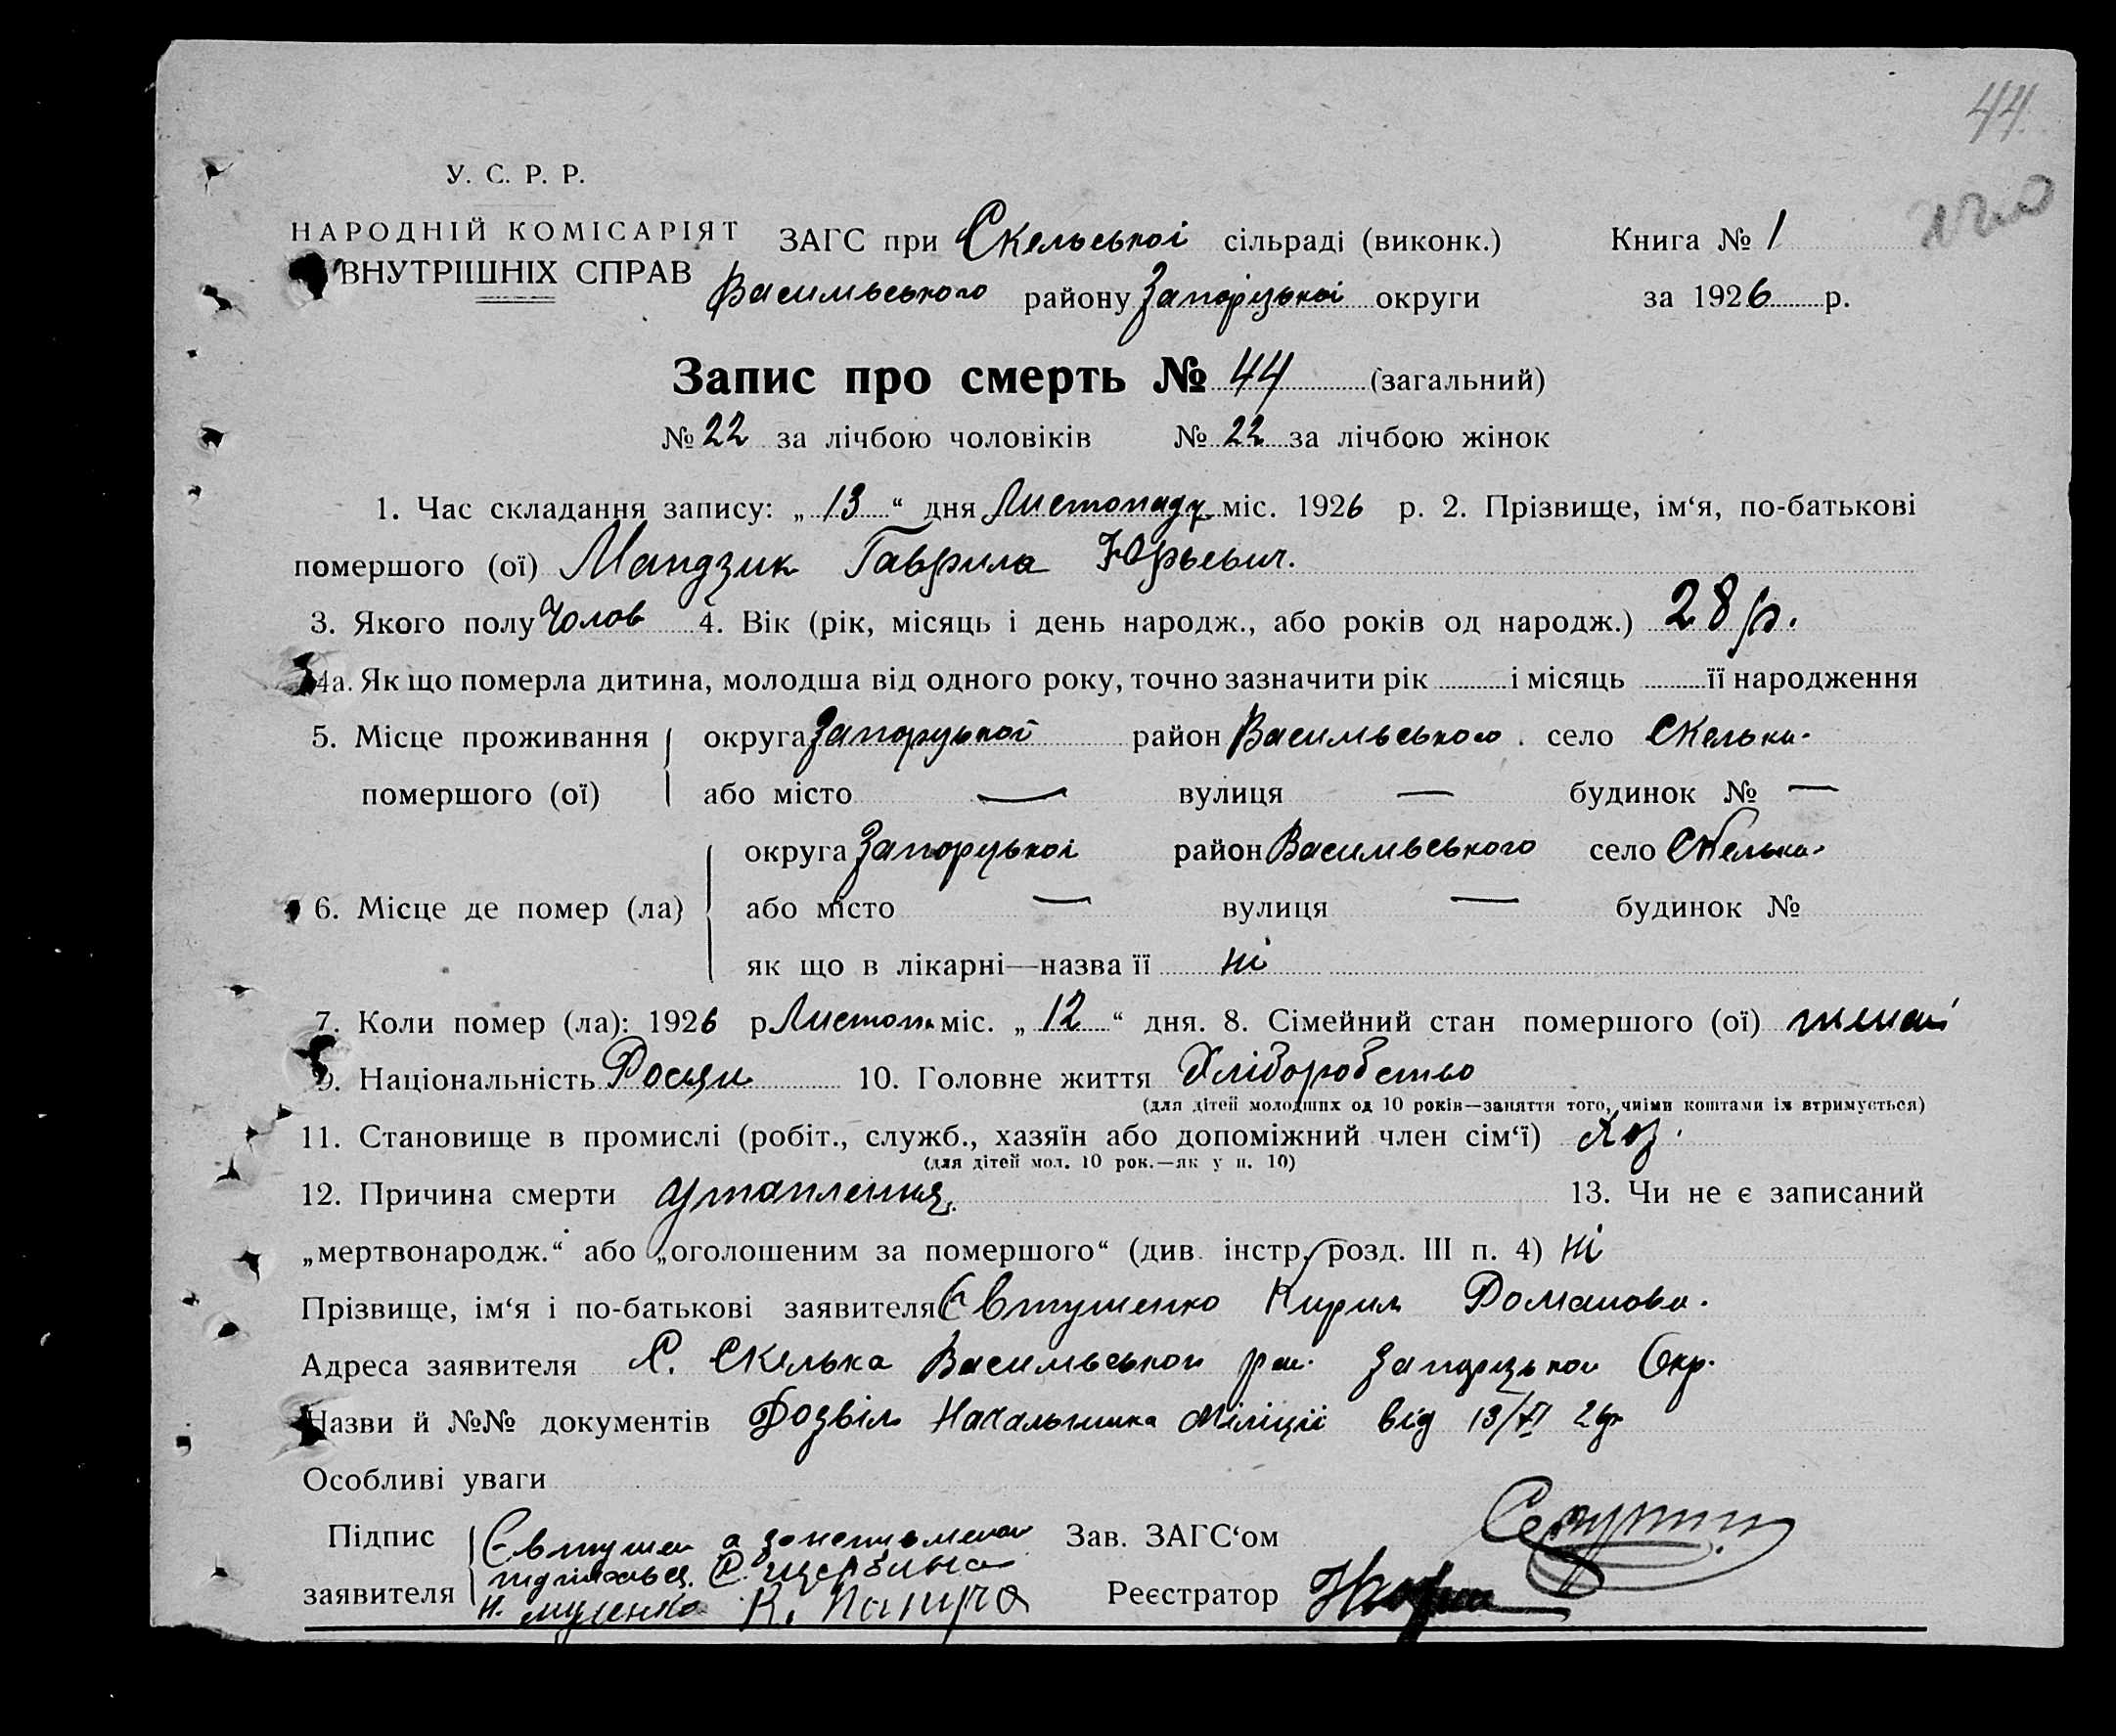 44.
У. С. Р. Р.
НАРОДНІЙ КОМІСАРІЯТ
ВНУТРІШНІХ СПРАВ
ЗАГС при Скельської сільраді (виконк.)
Васильського району Запорізької округи
Книга № 1
за 1926 р.
Запис про смерть № 44 (загальний)
№ 22 за лічбою чоловіків № 22 за лічбою жінок
1. Час складання запису: „ 13 “ дня Листопаду міс. 1926 р. 2. Прізвище, ім‘я, по-батькові
помершого (ої) Мандзик Гаврила Юрьевич.
3. Якого полу Чолов 4. Вік (рік, місяць і день народж., або років од народж.) 28 р.
4а. Як що померла дитина, молодша від одного року, точно зазначити рік і місяць її народження
5. Місце проживання округа Запорізької район Васильського село Скельки.
помершого (ої) або місто — вулиця — будинок № —
округа Запорізької район Васильського село Скельки.
6. Місце де помер (ла) або місто — вулиця — будинок №
як що в лікарні—назва її ні
7. Коли помер (ла): 1926 р Листоп. міс. „ 12 “ дня. 8. Сімейний стан помершого (ої)
9. Національність Росіян 10. Головне життя Хліборобство
(для дітей молодших од 10 років—заняття того, чиїми коштами їх втримується)
11. Становище в промислі (робіт., служб., хазяїн або допоміжний член сім‘ї) Хоз.
(для дітей мол. 10 рок.—як у п. 10)
12. Причина смерти утоплення. 13. Чи не є записаний
„мертвонародж.“ або „оголошеним за помершого“ (див. інстр. розд. III п. 4) ні
Прізвище, ім‘я і по-батькові заявителя Євтушенко Кирил Романови.
Адреса заявителя С. Скелька Васильської рай. Запорізької Окр.
Назви й №№ документів Дозвіл Начальника Міліції від 13/XI 26р
Особливі уваги
Підпис Євтушен а за неписьмен
підписався С. Щербина
заявителя К. Папира
Зав. ЗАГС‘ом
Реєстратор